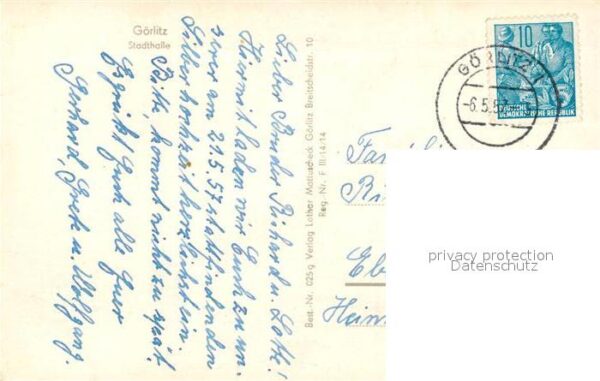 Görlitz
Stadthalle
Lieber Bruder Richard u. Lotte!
Hiermit laden wir Euch zu un-
serer am 21.5.57 stattfindenden
Silberhochzeit herzlichst ein.
Bitte, kommt nicht zu spät.
Es grüßt Euch alle Euer
Gerhard, Grete u. Wolfgang.
Best.-Nr. 025g Verlag Lothar Mattiuscheck Görlitz Breitscheidstr. 10
Reg.-Nr. F III-14-14
10
DEUTSCHE
DEMOKRATISCHE REPUBLIK
GÖRLITZ
-6.5.5
Famili
Ri
Eb
Hein
privacy protection
Datenschutz